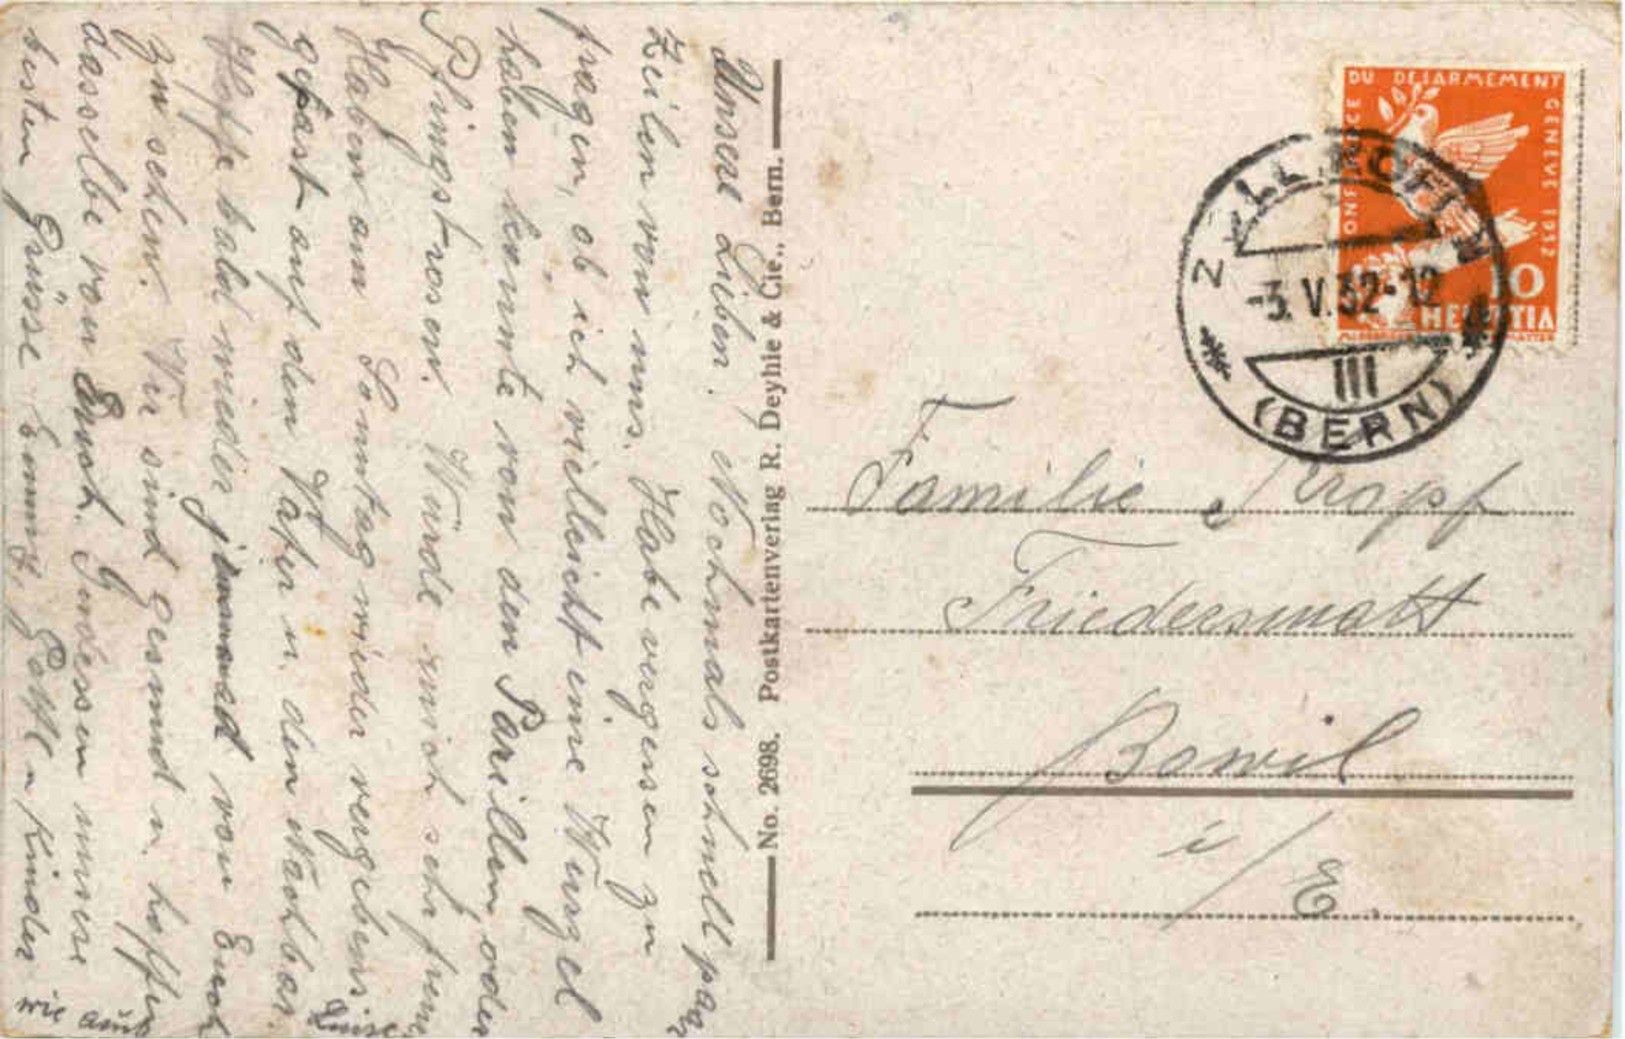 Unsere Liben. Nochmals schnell paar
Zeilen von uns. Habe vergessen zu
fragen, ob ich vielleicht eine Wurzel
haben könnte von den Parillen oder
Pfingstrosen. Würde mich sehr freuen
Haben am Sonntag wieder vergebens
gefast auf den Vater u. den Nachbar.
Hoffe bald wieder jemand von Euch
zu sehen. Wir sind gesund u. hoffen
dasselbe von Euch. Indessen unsere
besten Grüsse Ernst, Gotte u Kinder
wie auch
Luise.
No. 2698. Postkartenverlag R. Deyhle & Cie., Bern.
CONFERENCE DU DESARMEMENT GENEVE 1932
10
HELVETIA
ZOLLIKOFEN
-3.V.32-12
III
(BERN)
Familie Kropf
Friedersmatt
Bowil
i/E.